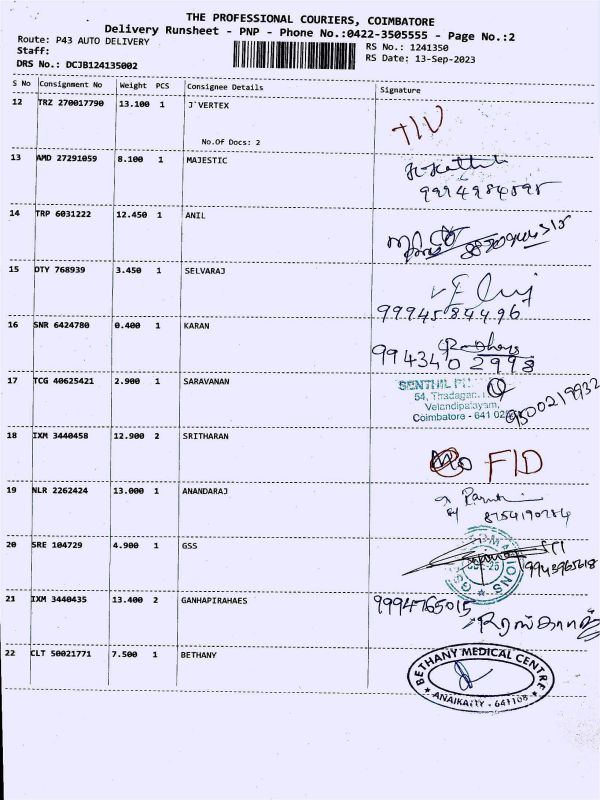 THE PROFESSIONAL COURIERS, COIMBATORE
Delivery Runsheet - PNP - Phone No.:0422-3505555 - Page No.:2
Route: P43 AUTO DELIVERY
RS No.: 1241350
Staff:
RS Date: 13-Sep-2023
DRS No.: DCJB124135002
S No Consignment No Weight PCS Consignee Details Signature
12 TRZ 270017790 13.100 1 J`VERTEX
No.Of Docs: 2
13 AMD 27291059 8.100 1 MAJESTIC
14 TRP 6031222 12.450 1 ANIL
15 DTY 768939 3.450 1 SELVARAJ
9994584496
16 SNR 6424780 0.400 1 KARAN
9943402998
17 TCG 40625421 2.900 1 SARAVANAN
SENTHIL
54, Thadagam
Velandipalayam,
Coimbatore - 641 025
9500219932
18 IXM 3440458 12.900 2 SRITHARAN
FID
19 NLR 2262424 13.000 1 ANANDARAJ
8754190784
20 SRE 104729 4.900 1 GSS
9943965618
21 IXM 3440435 13.400 2 GANHAPIRAHAES
9994765015
22 CLT 50021771 7.500 1 BETHANY
BETHANY MEDICAL CENTRE
ANAIKATTY - 641108